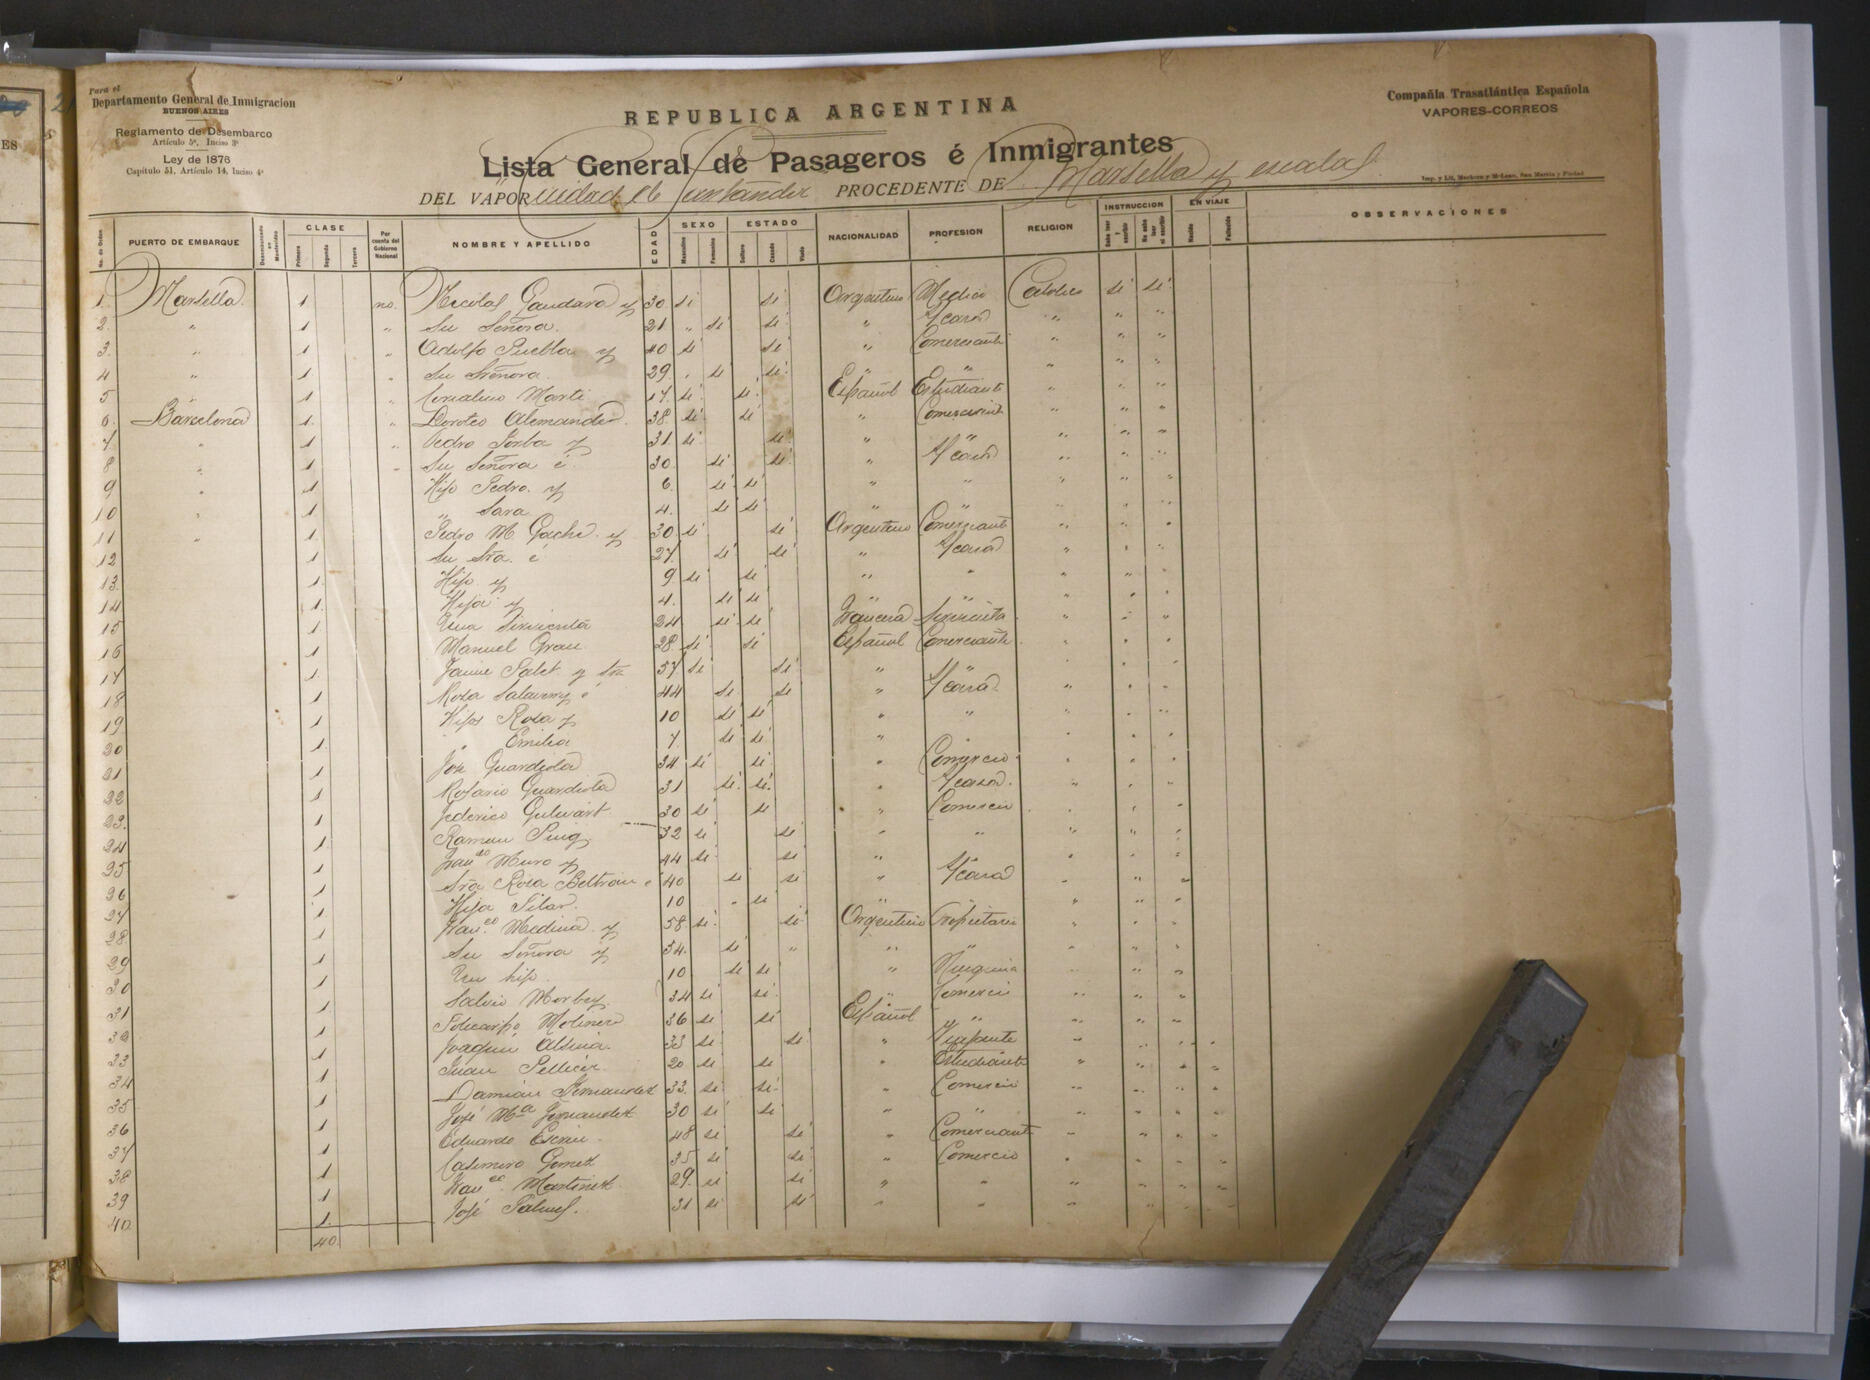 Para el
Departamento General de Inmigracion
BUENOS AIRES
Reglamento de Desembarco
Artículo 5º, Inciso 3º
Ley de 1876
Capítulo 51, Artículo 14, Inciso 4º
REPUBLICA ARGENTINA
Lista General de Pasageros é Inmigrantes
DEL VAPOR Ciudad de Santander PROCEDENTE DE Marsella y escalas
Compañía Trasatlántica Española
VAPORES-CORREOS
No. de Orden PUERTO DE EMBARQUE CLASE Primera Segunda Tercera Por cuenta del Gobierno Nacional NOMBRE Y APELLIDO EDAD SEXO Masculino Femenino ESTADO Soltero Casado Viudo NACIONALIDAD PROFESION RELIGION INSTRUCCION Sabe leer y escribir No sabe leer ni escribir EN VIAJE Nacido Fallecido OBSERVACIONES
1 Marsella 1 no Nicolas Gandara y 30 si si Argentino Medico Catolico si si
2 " 1 " Su Señora 21 " si si " S/casa " " "
3 " 1 " Adolfo Puebla y 40 si si " Comerciante " " "
4 " 1 " Su Señora 29 " si si " " " " "
5 " 1 " Marti 17 si si Español Estudiante " " "
6 Barcelona 1 " Doroteo Alemando 38 si si " Comerciante " " "
7 " 1 " Pedro Sorba y 31 si si " " " "
8 " 1 " Su Señora é 30 si si " S/casa " " "
9 " 1 Hijo Pedro y 6 si si " " " " "
10 " 1 " Sara 4 si si " " " " "
11 " 1 Pedro M. Gache y 30 si si Argentino Comerciante " " "
12 1 Su Sra é 27 si si " S/casa " " "
13 1 Hijo y 9 si si " " " " "
14 1 Hija y 4 si si " " " " "
15 1 Una Sirvienta 24 si si Francesa Sirvienta " " "
16 1 Manuel Grau 28 si si Español Comerciante " " "
17 1 Jaime Palet y Sra 57 si si " " " " "
18 1 Rosa é 44 si si " S/casa " " "
19 1 Hijos Rosa y 10 si si " " " " "
20 1 " Emilia 7 si si " " " "
21 1 José Guardiola 34 si si " Comercio " " "
22 1 Rosario Guardiola 31 si si " S/casa " " "
23 1 Federico 30 si si " Comercio " " "
24 1 Ramon Puig 32 si si " " " " "
25 1 Franco Muro y 44 si si " " " "
26 1 Sra Rosa Beltran é 40 si si " S/casa " " "
27 1 Hija Pilar 10 " si " " " " "
28 1 Franco Medina y 58 si si Argentino Propietario " " "
29 1 Su Señora y 54 si " " " " " "
30 1 Un hijo 10 si si " Ninguna " " "
31 1 Salvio 34 si si " Comercio " " "
32 1 Policarpo Molinero 36 si si Español " " " "
33 1 Joaquin Alsina 33 si si " Viajante " " " "
34 1 Juan Pellicer 20 si si " Estudiante " " " "
35 1 Damián Fernandez 33 si si " Comercio " " " "
36 1 José Ma Fernandez 30 si si " " " " " "
37 1 Eduardo Escriu 48 si si " Comerciante " " " "
38 1 Casimiro Gomez 35 si si " Comercio " " " "
39 1 Franco Martinez 29 si si " " " " " "
40 1 José 31 si si " " " " " "
40